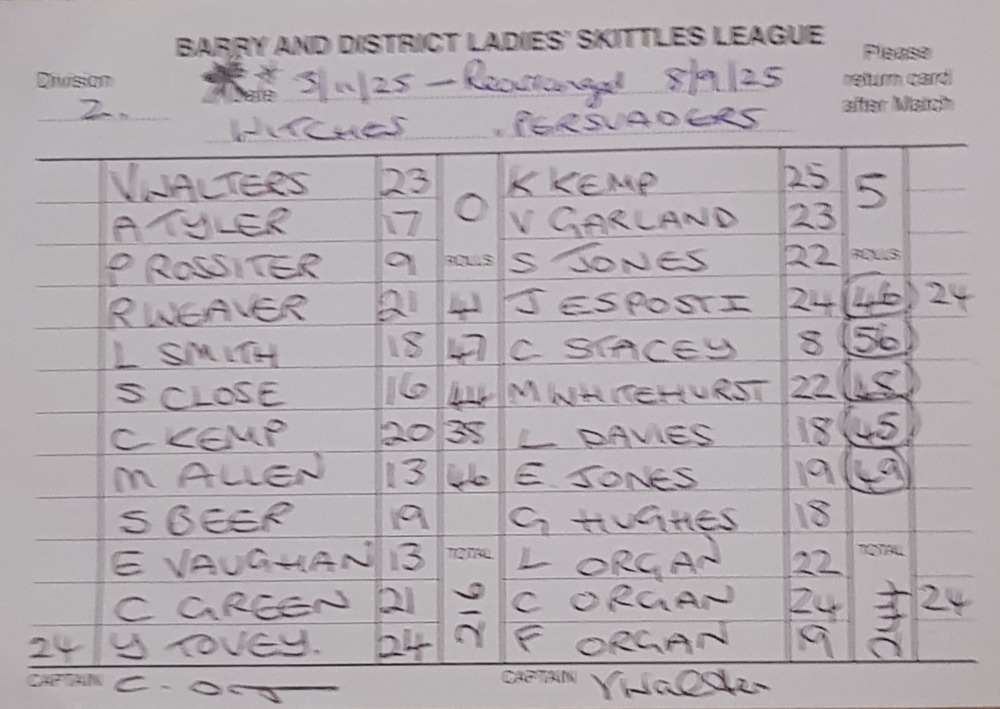 BARRY AND DISTRICT LADIES' SKITTLES LEAGUE
Division Date 3/11/25 - Rearranged 8/9/25 Please return card after Match
2.
WITCHES . PERSUADERS
V WALTERS 23 0 K KEMP 25 5
A TYLER 17 V GARLAND 23
P ROSSITER 9 ROLLS S JONES 22 ROLLS
R WEAVER 21 41 J ESPOSTI 24 46 24
L SMITH 18 47 C STACEY 8 56
S CLOSE 16 44 M WHITEHURST 22 48
C KEMP 20 38 L DAVIES 18 45
M ALLEN 13 46 E. JONES 19 49
S BEER 19 G HUGHES 18
E VAUGHAN 13 TOTAL L ORGAN 22 TOTAL
C GREEN 21 216 C ORGAN 24 244 24
24 Y TOVEY. 24 F ORGAN 19
CAPTAIN C. Org CAPTAIN VWalters